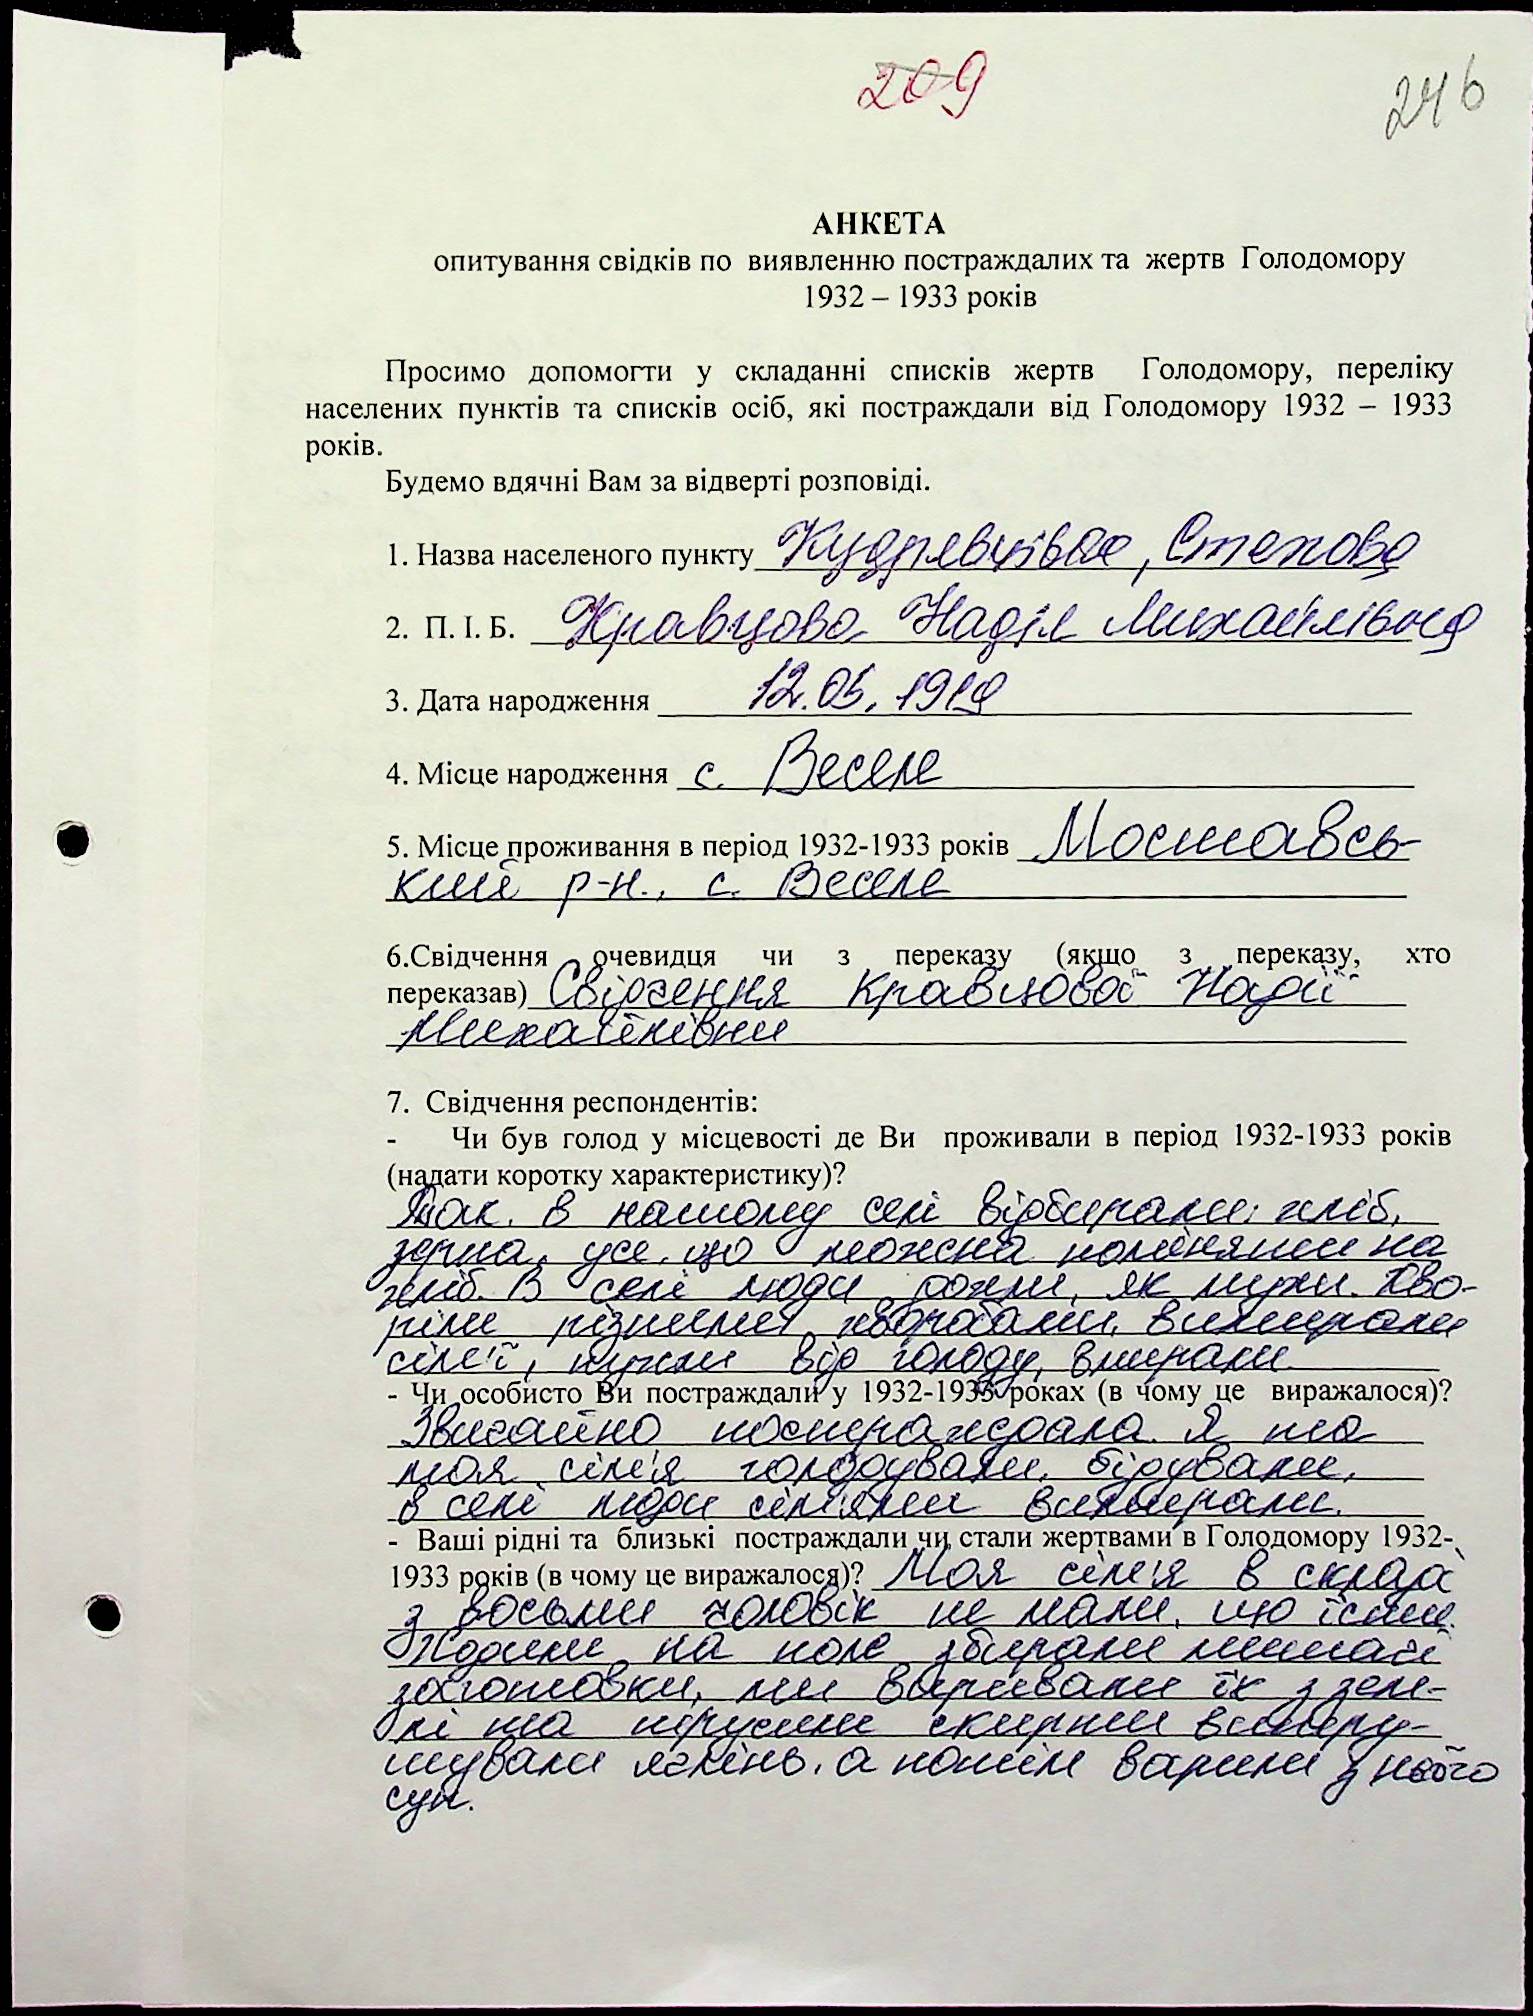 209
246
АНКЕТА
опитування свідків по виявленню постраждалих та жертв Голодомору
1932 – 1933 років
Просимо допомогти у складанні списків жертв Голодомору, переліку
населених пунктів та списків осіб, які постраждали від Голодомору 1932 – 1933
років.
Будемо вдячні Вам за відверті розповіді.
1. Назва населеного пункту Кудрявцівка, Степова
2. П. І. Б. Кравцова Надія Михайлівна
3. Дата народження 12.05.1919
4. Місце народження с. Веселе
5. Місце проживання в період 1932-1933 років Моставсь-
кий р-н., с. Веселе
6.Свідчення очевидця чи з переказу (якщо з переказу, хто
переказав) Свідчення Кравцової Надії
Михайлівни
7. Свідчення респондентів:
- Чи був голод у місцевості де Ви проживали в період 1932-1933 років
(надати коротку характеристику)?
Так. В нашому селі відбирали: хліб,
зерно, усе, що можна поміняти на
хліб. В селі люди дохли, як мухи. Хво-
ріли різними хворобами, вимирали
сім'ї, пухли від голоду, вмирали.
- Чи особисто Ви постраждали у 1932-1933 роках (в чому це виражалося)?
Звичайно постраждала. Я та
моя сім'я голодували, бідували,
в селі люди сім'ями вимирали.
- Ваші рідні та близькі постраждали чи стали жертвами в Голодомору 1932-
1933 років (в чому це виражалося)? Моя сім'я в складі
з восьми чоловік не мали, що їсти.
Ходили на поле збирали
ми виривали їх з зем-
лі та скирти
ячмінь, а потім варили з нього
суп.